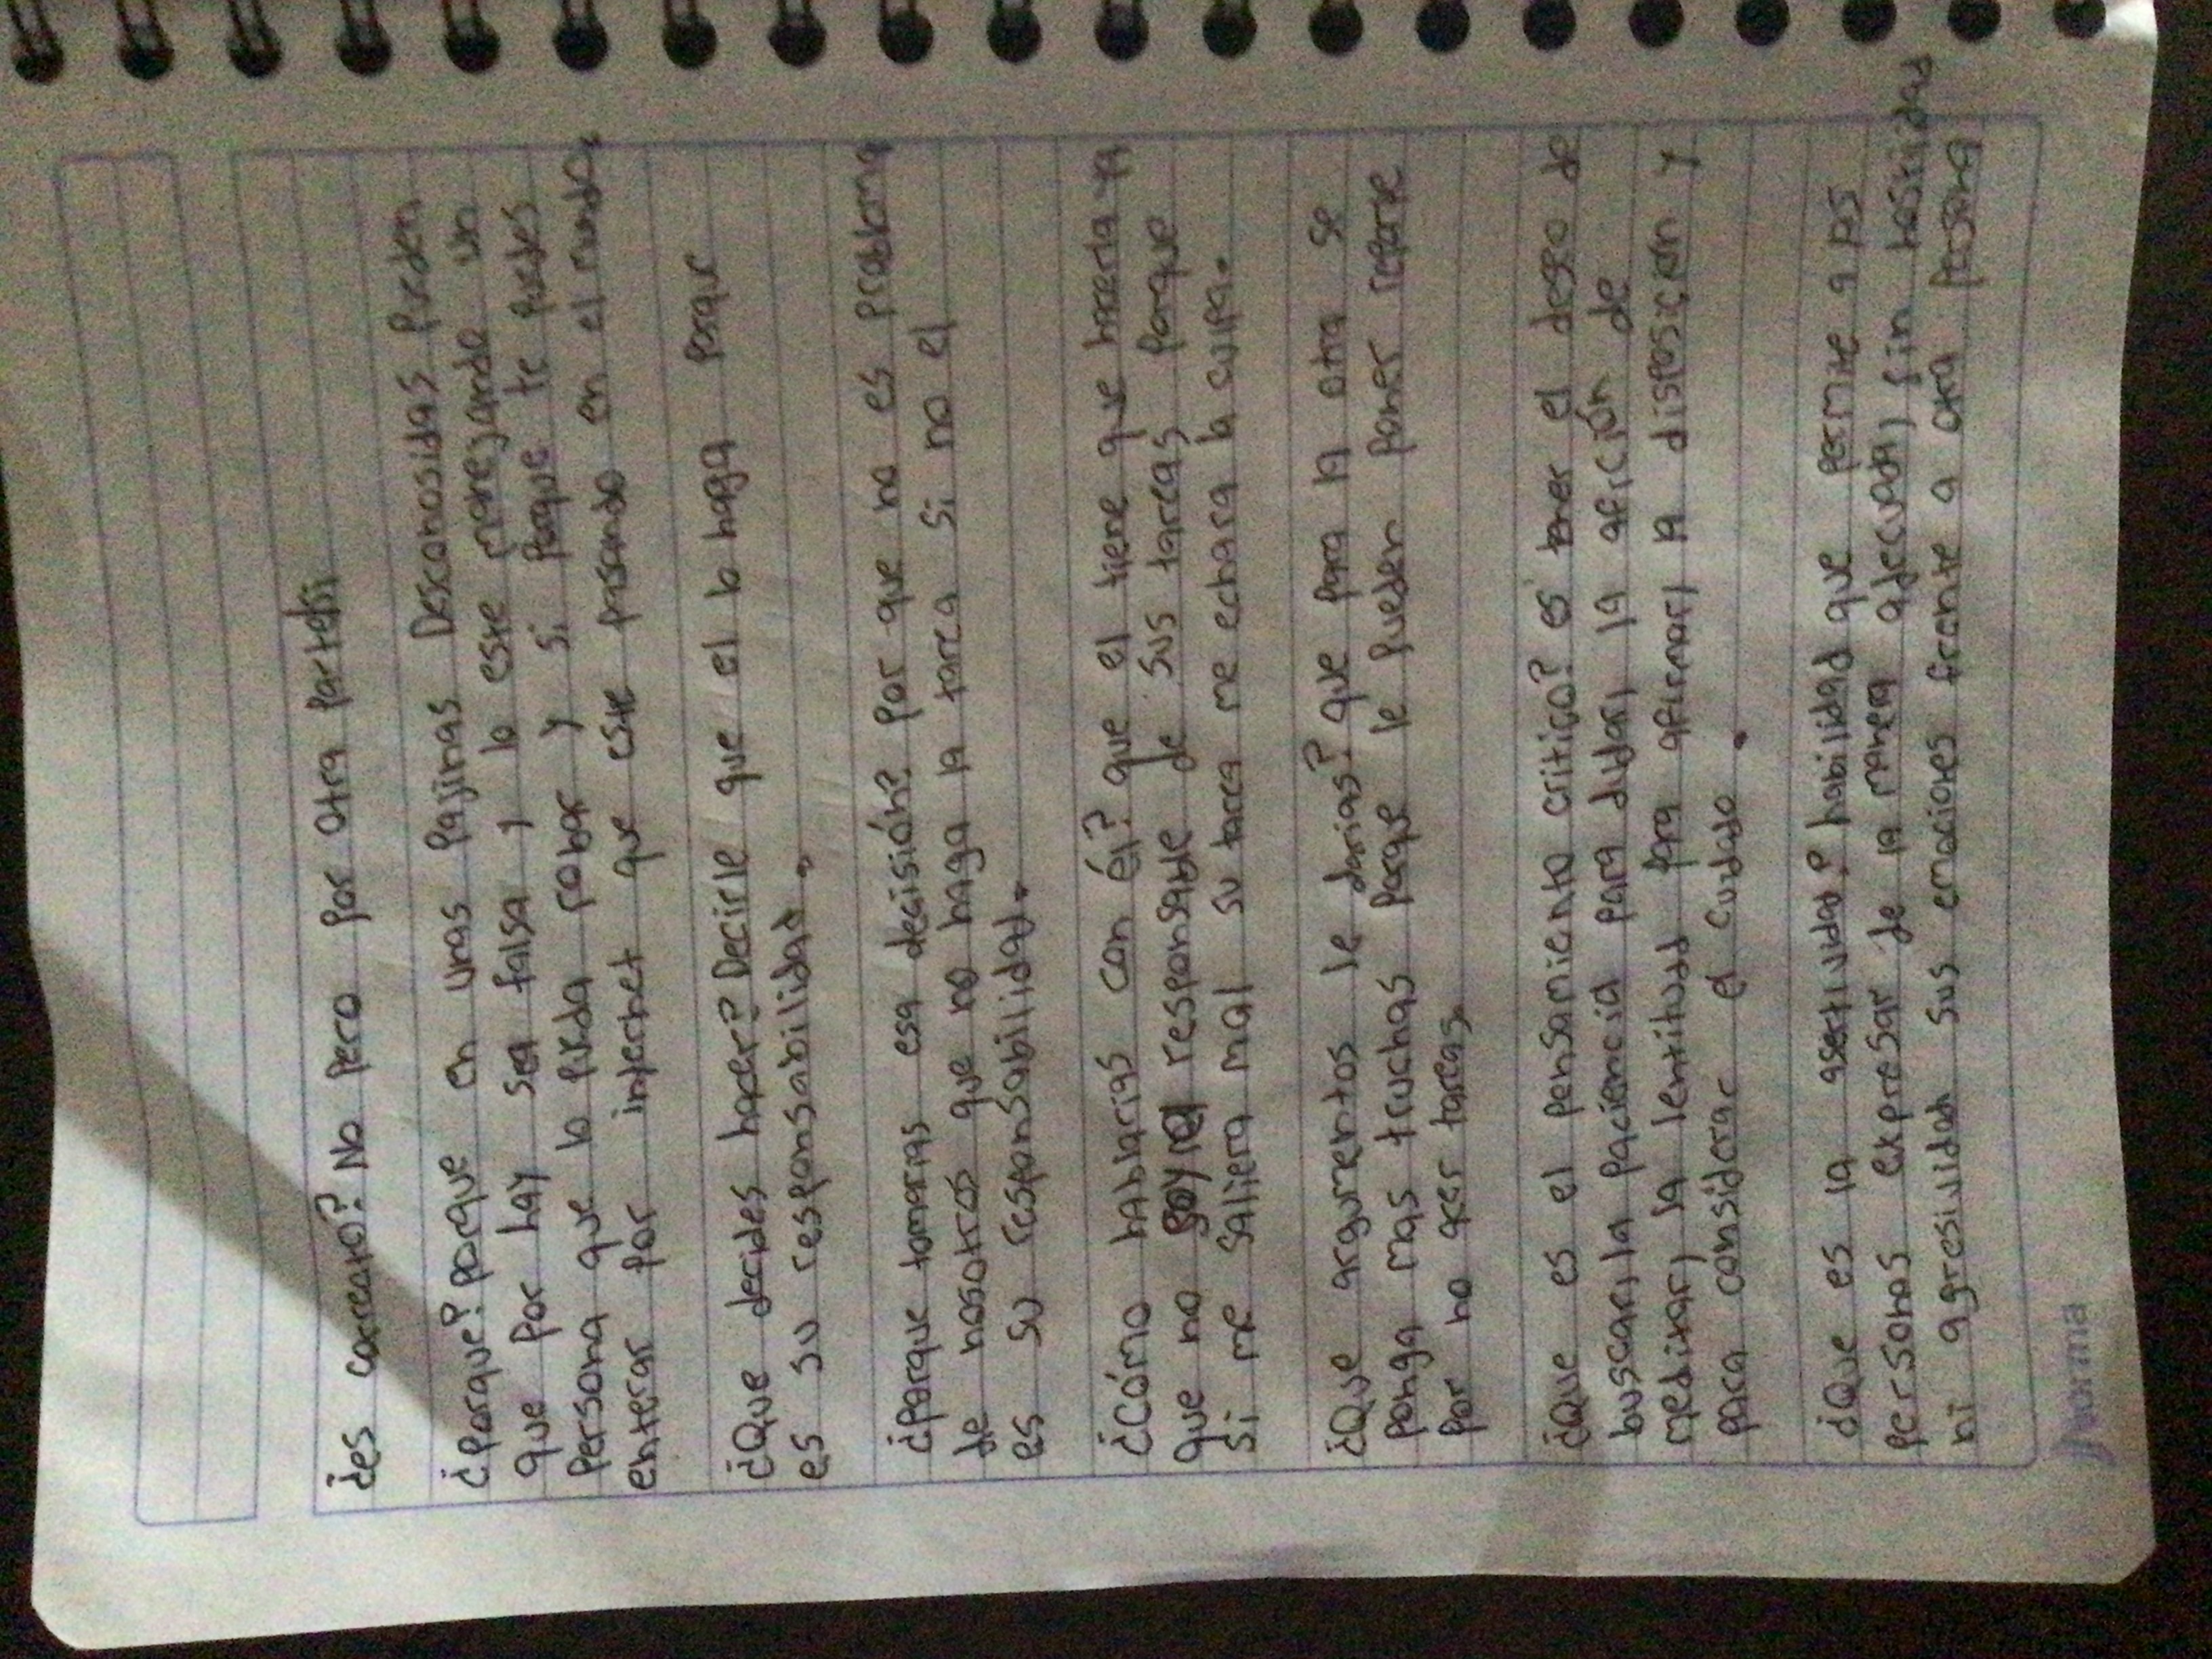 ¿es correcto? No pero por otra parte si.
¿porque? porque en unas pajinas Desconosidas pueden
que por hay sea falsa y lo este manejando un
persona que lo pueda robar y si porque te puedes
enterar por internet que este pasando en el mundo
¿Que decides hacer? Decirle que el lo haga porque
es su responsabilidad.
¿Porque tomarias esa decisión? Por que no es problema
de nosotros que no haga la tarea si no el
es su responsabilidad.
¿Cómo hablarias con él? que el tiene que hacerla ya
que no soy la responsable de sus tareas porque
si me saliera mal su tarea me echara la culpa.
¿Que argumentos le darias? que para la otra se
ponga mas truchas porque le pueden poner reporte
por no acer tareas.
¿Que es el pensamiento critico? es tener el deseo de
buscar, la paciencia para dudar, la afición de
meditar, la lentitud para afirmar, la disposición y
para considerar el cuidado.
¿Que es la asertividad? habilidad que permite a las
personas expresar de la manera adecuada, sin hostilidad
ni agresividad sus emociones frente a otra persona
norma